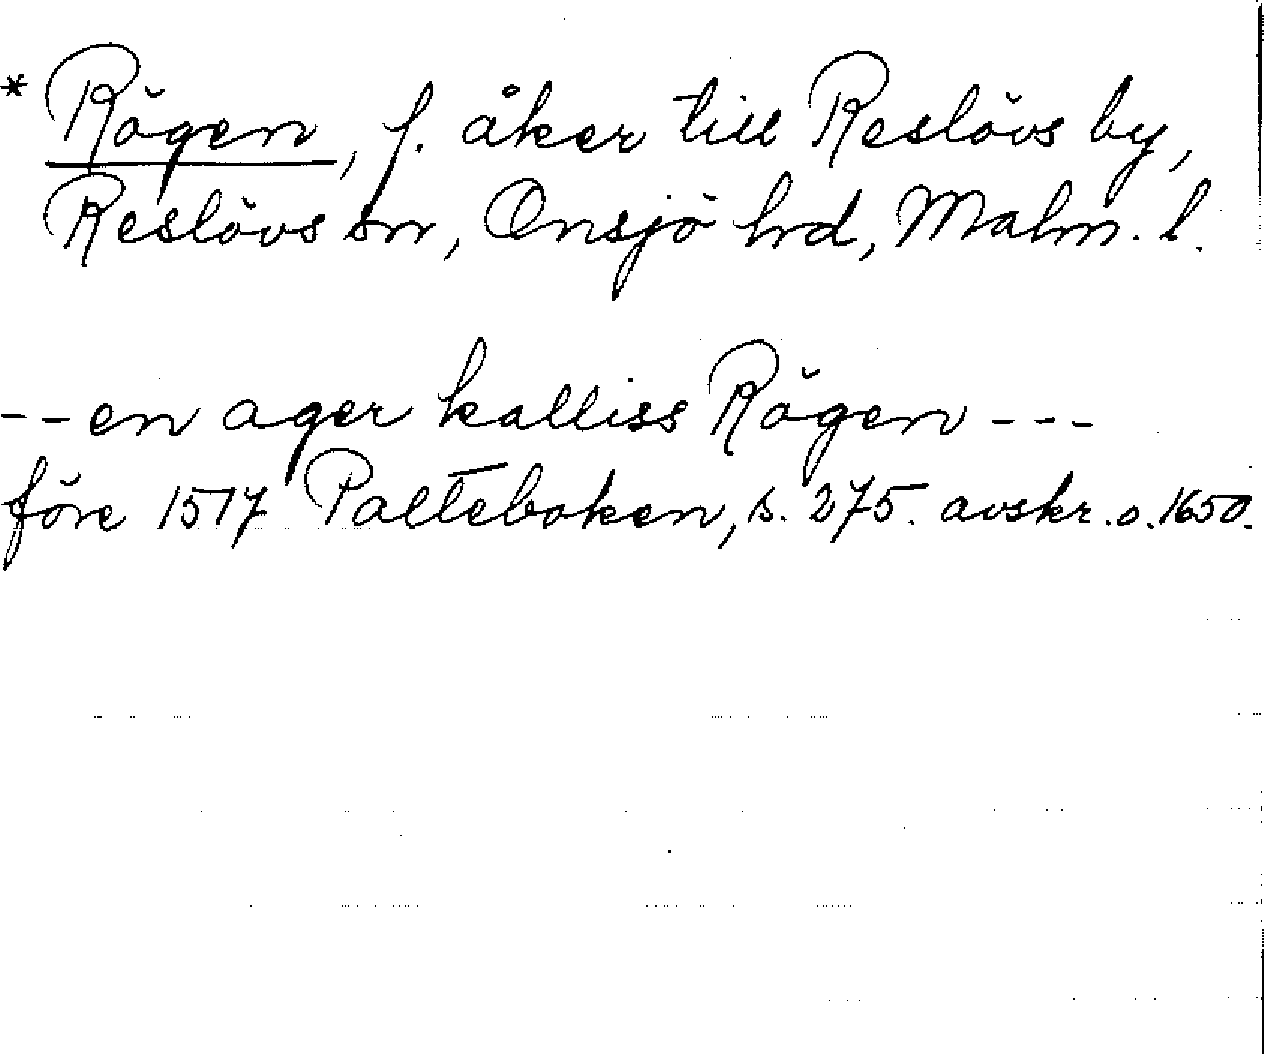 * Rögen, f. åker till Reslövs by,
Reslövs sn, Onsjö hrd, Malm. l.
-- en ager kalliss Rögen ---
före 1517 Palteboken, s. 275. avskr. o. 1650.